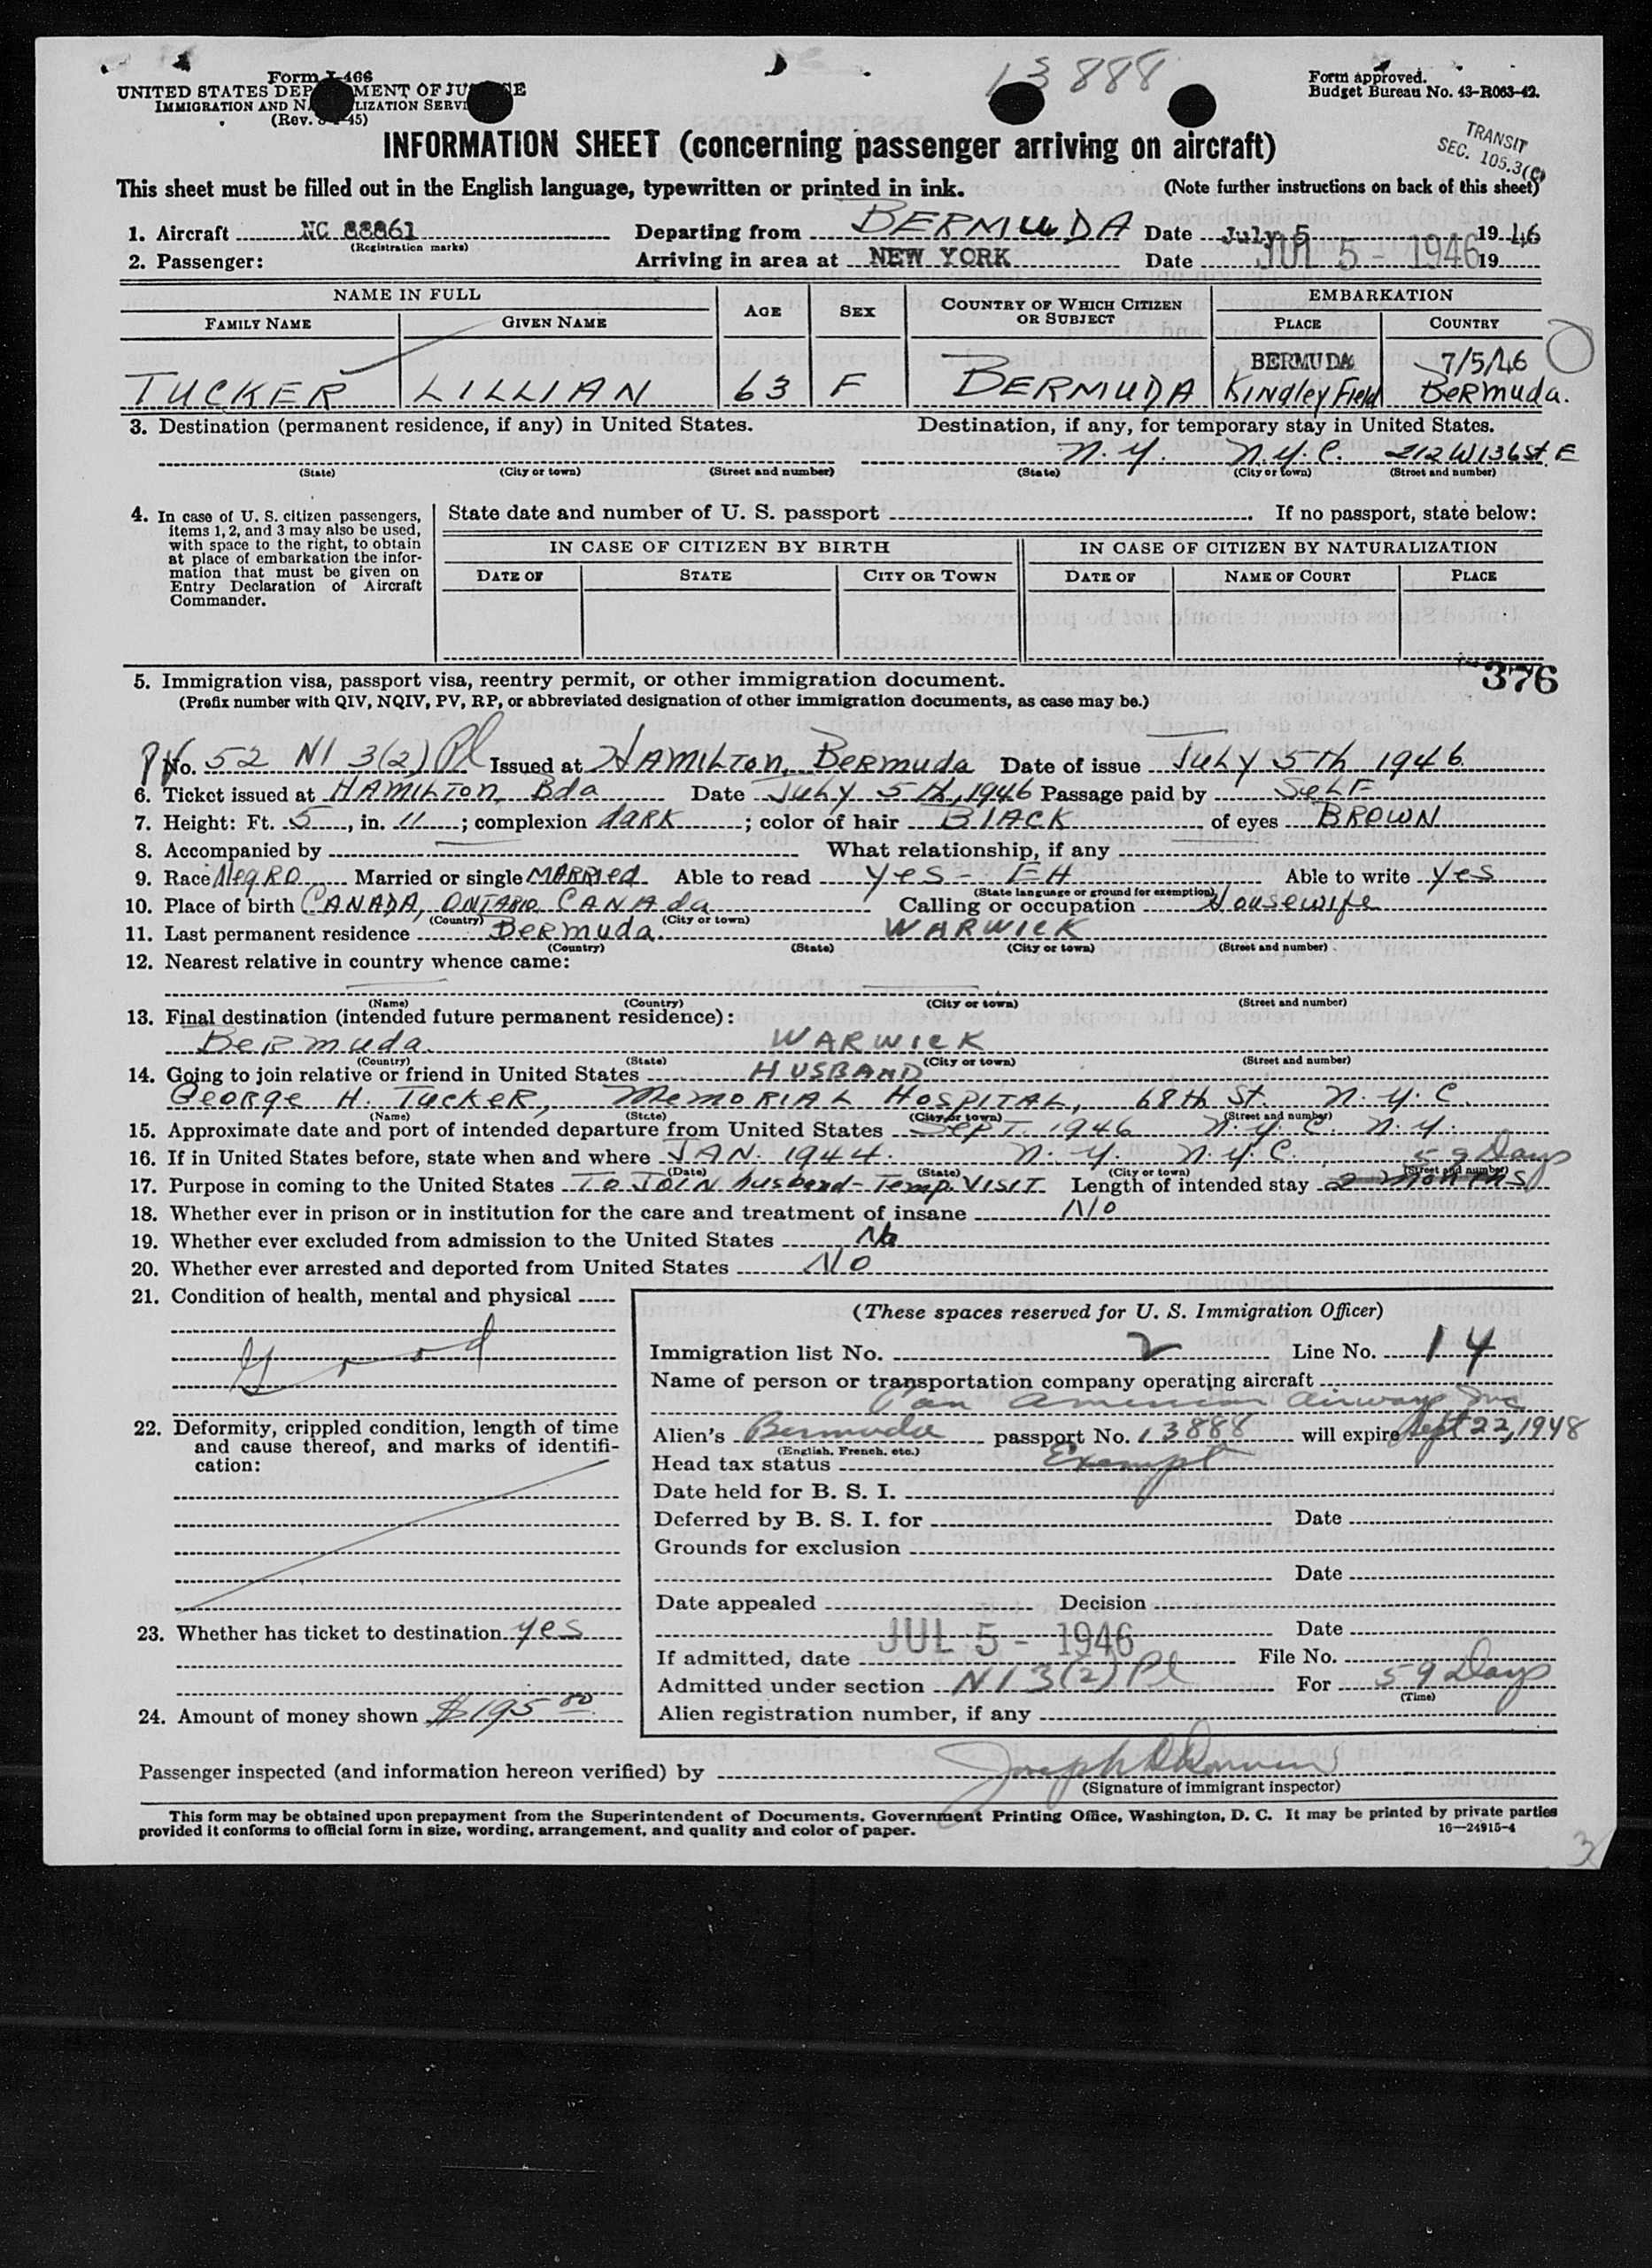 13888
Form I-466
UNITED STATES DEPARTMENT OF JUSTICE
IMMIGRATION AND NATURALIZATION SERVICE
(Rev. 45)
Form approved.
Budget Bureau No. 43-R063-42.
INFORMATION SHEET (concerning passenger arriving on aircraft)
TRANSIT
SEC. 105.3(c)
This sheet must be filled out in the English language, typewritten or printed in ink. (Note further instructions on back of this sheet)
1. Aircraft NC 88861 Departing from BERMUDA Date July 5 1946
(Registration marks)
2. Passenger: Arriving in area at NEW YORK Date JUL 5 - 1946 19
NAME IN FULL AGE SEX COUNTRY OF WHICH CITIZEN OR SUBJECT EMBARKATION
FAMILY NAME GIVEN NAME PLACE COUNTRY
BERMUDA 7/5/46
TUCKER LILLIAN 63 F BERMUDA Kindley Field Bermuda.
3. Destination (permanent residence, if any) in United States. Destination, if any, for temporary stay in United States.
N.Y. N.Y.C. 212 W 136 St. E
(State) (City or town) (Street and number) (State) (City or town) (Street and number)
4. In case of U. S. citizen passengers, items 1, 2, and 3 may also be used, with space to the right, to obtain at place of embarkation the information that must be given on Entry Declaration of Aircraft Commander.
State date and number of U. S. passport If no passport, state below:
IN CASE OF CITIZEN BY BIRTH IN CASE OF CITIZEN BY NATURALIZATION
DATE OF STATE CITY OR TOWN DATE OF NAME OF COURT PLACE
376
5. Immigration visa, passport visa, reentry permit, or other immigration document.
(Prefix number with QIV, NQIV, PV, RP, or abbreviated designation of other immigration documents, as case may be.)
PV No. 52 NI 3(2) Pl Issued at HAMILTON, Bermuda Date of issue July 5th 1946
6. Ticket issued at HAMILTON, Bda Date July 5th, 1946 Passage paid by SeLF
7. Height: Ft. 5, in. 11; complexion dARK; color of hair BlACK of eyes BROWN
8. Accompanied by What relationship, if any
9. Race NegRO Married or single MARRied Able to read yes - EH Able to write yes
(State language or ground for exemption)
10. Place of birth CANADA, ONTARIO, CANAda Calling or occupation Housewife
(Country) (City or town)
11. Last permanent residence Bermuda. WARWICK
(Country) (State) (City or town) (Street and number)
12. Nearest relative in country whence came:
(Name) (Country) (City or town) (Street and number)
13. Final destination (intended future permanent residence):
Bermuda. WARWICK
(Country) (State) (City or town) (Street and number)
14. Going to join relative or friend in United States HUSBAND
George H. Tucker, Memorial Hospital, 68th St. N.Y.C.
(Name) (State) (City or town) (Street and number)
15. Approximate date and port of intended departure from United States SepT. 1946 N.Y.C. N.Y.
16. If in United States before, state when and where JAN. 1944. N.Y. N.Y.C. 59 Days
(Date) (State) (City or town) (Street and number)
17. Purpose in coming to the United States To JOIN husband - Temp. VISIT Length of intended stay 2 months
18. Whether ever in prison or in institution for the care and treatment of insane No
19. Whether ever excluded from admission to the United States No
20. Whether ever arrested and deported from United States No
21. Condition of health, mental and physical
Good
22. Deformity, crippled condition, length of time and cause thereof, and marks of identification:
23. Whether has ticket to destination yes
24. Amount of money shown $195.00
(These spaces reserved for U. S. Immigration Officer)
Immigration list No. 2 Line No. 14
Name of person or transportation company operating aircraft
Pan American Airways Inc
Alien's Bermuda passport No. 13888 will expire Sept 22, 1948
(English, French, etc.)
Head tax status Exempt
Date held for B. S. I.
Deferred by B. S. I. for Date
Grounds for exclusion
Date
Date appealed Decision
Date
If admitted, date JUL 5 - 1946 File No.
Admitted under section NI 3(2) Pl For 59 Days
(Time)
Alien registration number, if any
Passenger inspected (and information hereon verified) by
(Signature of immigrant inspector)
This form may be obtained upon prepayment from the Superintendent of Documents, Government Printing Office, Washington, D. C. It may be printed by private parties
provided it conforms to official form in size, wording, arrangement, and quality and color of paper. 16—24915-4
3